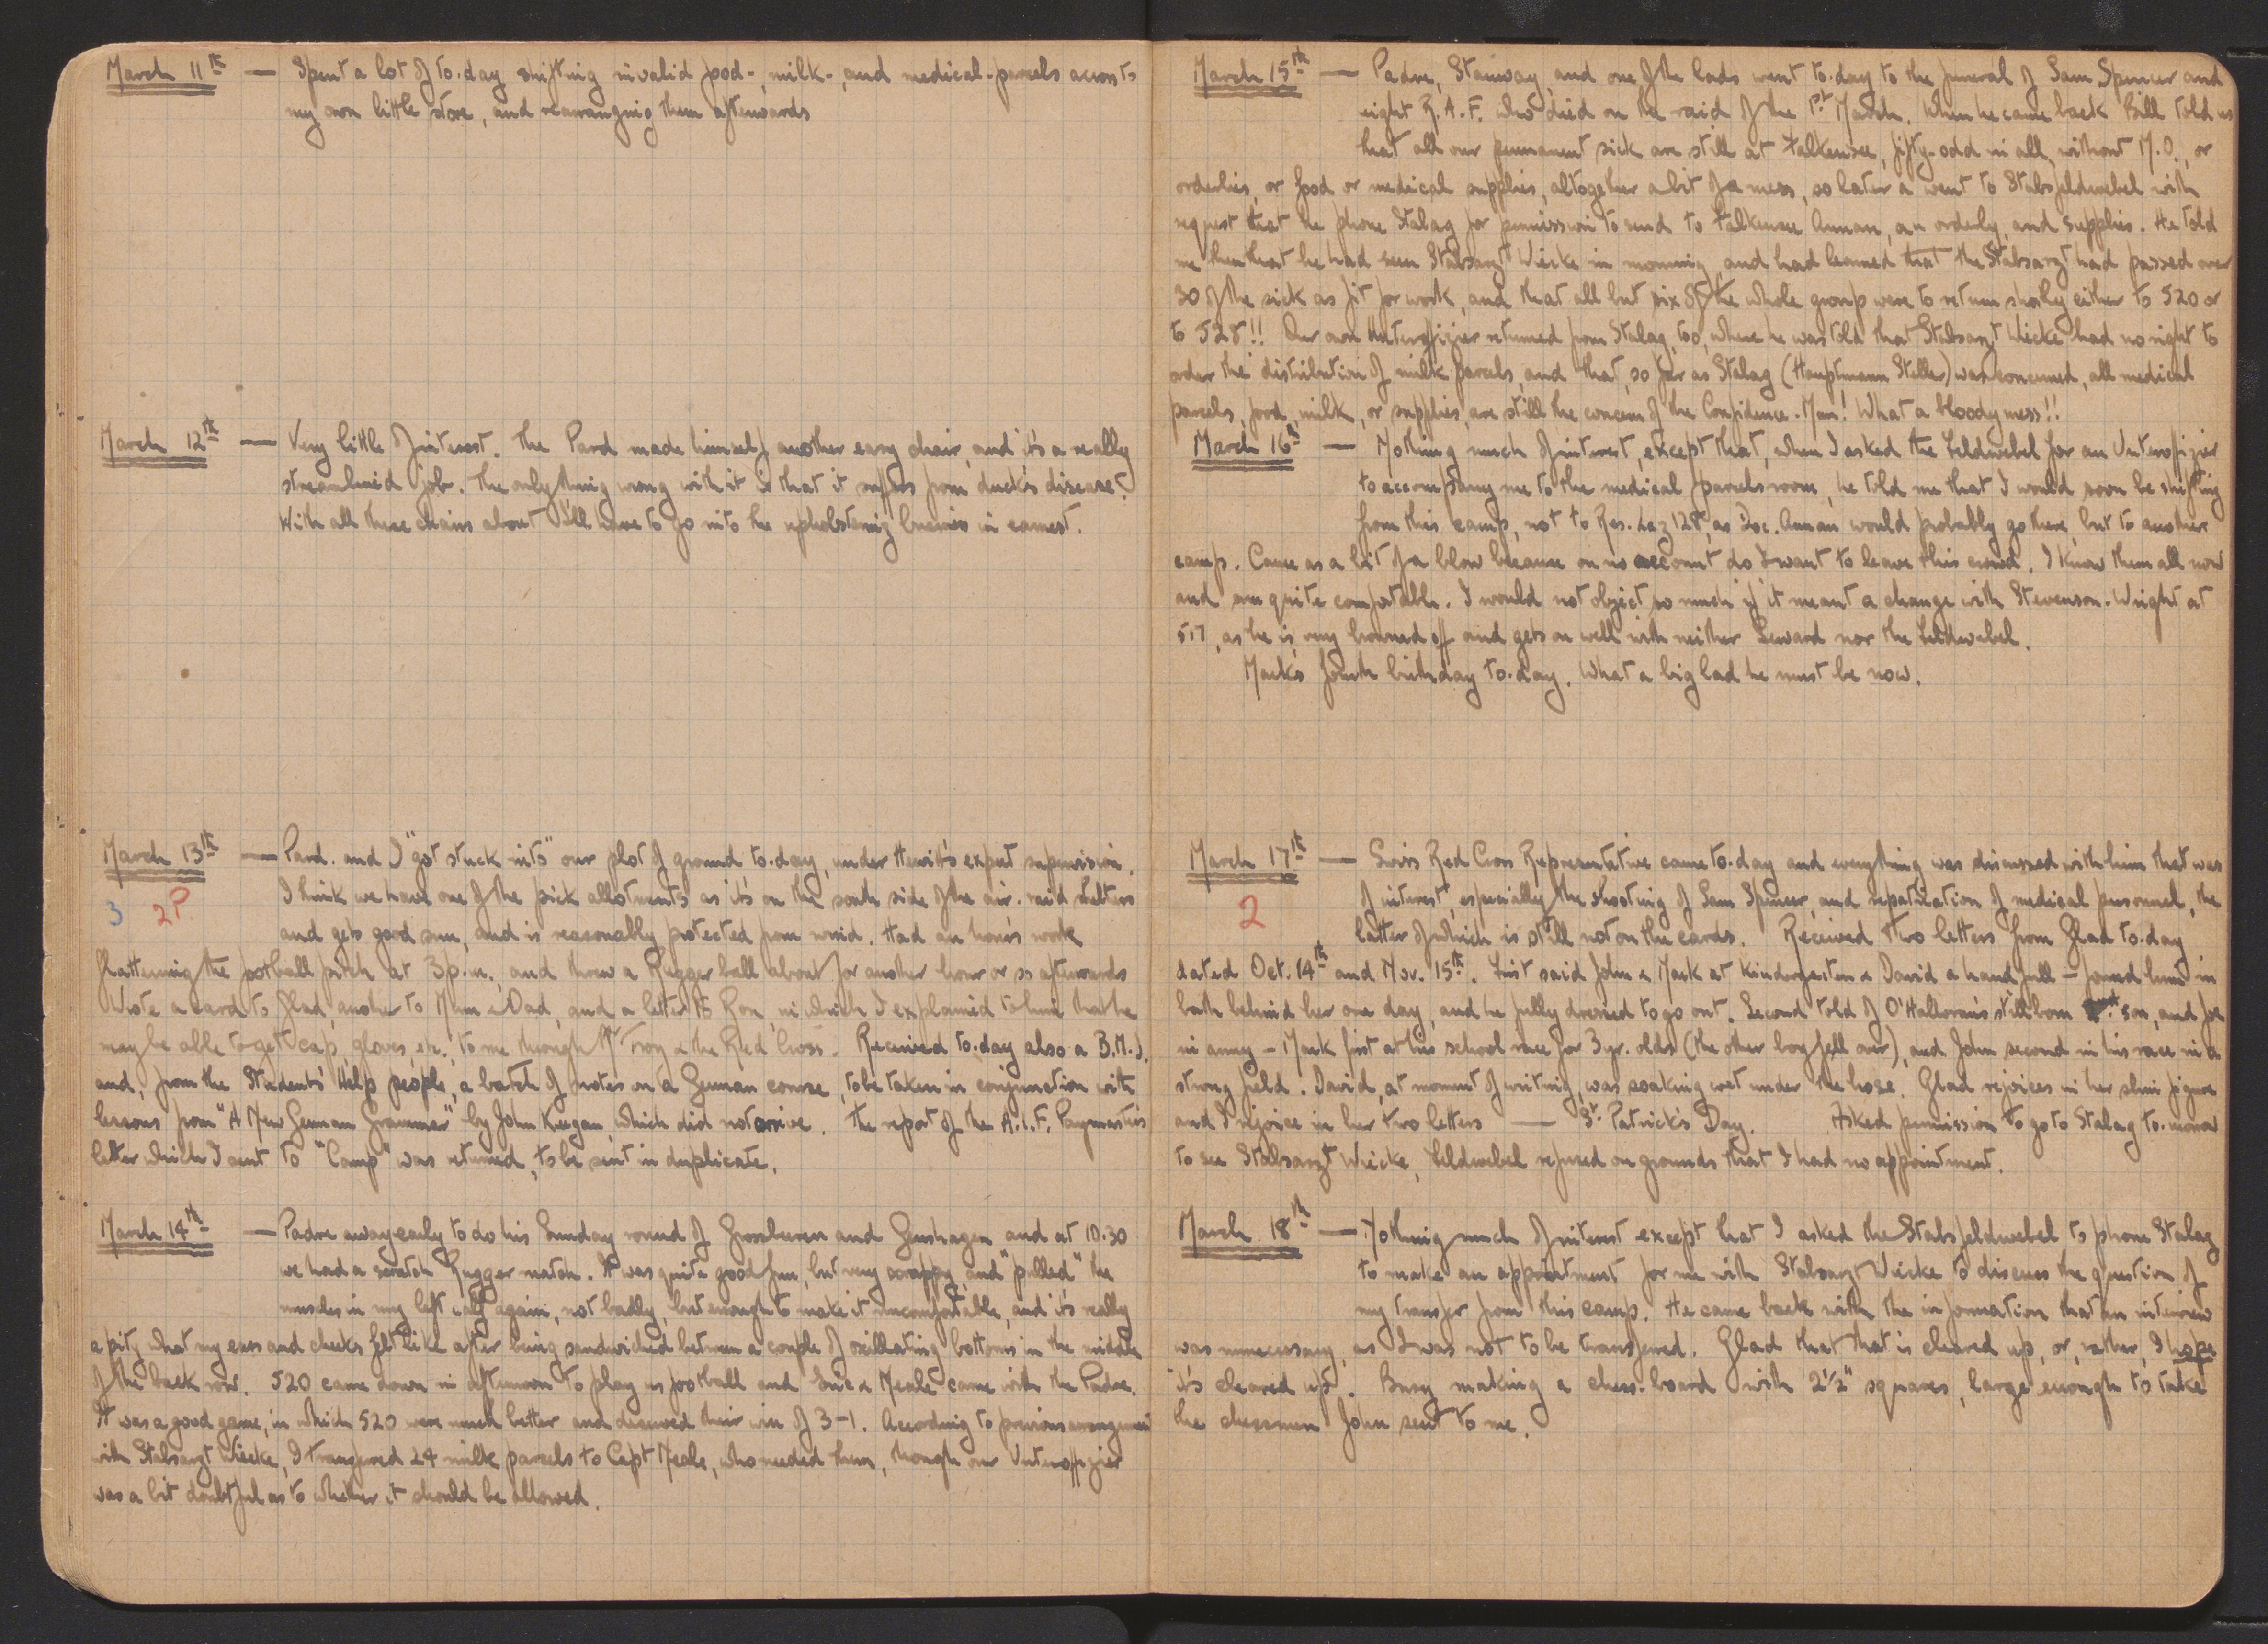 March 11th — Spent a lot of to-day shifting invalid food-, milk-, and medical-parcels across to
my own little store, and rearranging them afterwards
March 12th — Very little of interest. The Pard made himself another easy chair, and it's a really
streamlined job. The only thing wrong with it is that it suffers from duck's disease.
With all these chairs about I'll have to go into the upholstering business in earnest.
March 13th — Pard. and I "got stuck into" our plot of ground to-day, under Hewitt's expert supervision.
3 2P. I think we have one of the pick allotments as it's on the south side of the air-raid shelters
and gets good sun, and is reasonably protected from wind. Had an hour's work
flattening the football pitch at 3 p.m., and threw a Rugger ball about for another hour or so afterwards
Wrote a card to Glad, another to Mum & Dad, and a letter to Ron, in which I explained to him that he
may be able to get cap, gloves, etc., to me through Mr Troy & the Red Cross. Received to-day also a B.M.J.
and, from the Students' Help people, a batch of notes on a German course, to be taken in conjunction with
lessons from "A New German Grammar" by John Keegan, which did not arrive. The report of the A.I.F. Paymaster's
letter which I sent to "Camp" was returned, to be sent in duplicate.
March 14th — Padre away early to do his Sunday round of Grossbeeren and Genshagen and at 10.30
we had a scratch Rugger match. It was quite good fun, but very scrappy, and "pulled" the
muscles in my left calf again, not badly, but enough to make it uncomfortable, and it's really
a pity what my ears and cheeks felt like after being sandwiched between a couple of oscillating bottoms in the middle
of the back row. 520 came down in afternoon to play us football and & Neale came with the Padre.
It was a good game, in which 520 were much better and deserved their win of 3-1. According to previous arrangement
with Stabsarzt Wiecke, I transferred 24 milk parcels to Capt Neale, who needed them, though our Unteroffizier
was a bit doubtful as to whether it should be allowed.
March 15th — Padre, Stanway, and one of the lads went to-day to the funeral of Sam Spencer and
eight R.A.F. who died on the raid of the 1st March. When he came back Bill told us
that all our permanent sick are still at Falkensee, fifty-odd in all, without M.O., or
orderlies, or food or medical supplies, altogether a bit of a mess, so later a went to Stabsfeldwebel with
request that he phone Stalag for permission to send to Falkensee Annan, an orderly, and supplies. He told
me then that he had seen Stabsarzt Wiecke in morning, and had learned that the Stabsarzt had passed over
30 of the sick as fit for work, and that all but six of the whole group were to return shortly either to 520 or
to 528!! Our own Unteroffizier returned from Stalag, too, where he was told that Stabsarzt Wiecke had no right to
order the distribution of milk parcels, and that, so far as Stalag (Hauptmann Steller) was concerned, all medical
parcels, food, milk, or supplies, are still the concern of the Confidence-Man! What a bloody mess!!
March 16th — Nothing much of interest, except that, when I asked the Feldwebel for an Unteroffizier
to accompany me to the medical parcels room, he told me that I would soon be shifting
from this camp, not to Res. Laz 128, as Doc. Annan would probably go there, but to another
camp. Came as a bit of a blow because on no account do I want to leave this crowd. I know them all now
and am quite comfortable. I would not object so much if it meant a change with Stevenson-Wright at
517, as he is very browned off and gets on well with neither Seward nor the Feldwebel.
Mack's fourth birthday to-day. What a big lad he must be now.
March 17th — Swiss Red Cross Representative came to-day and everything was discussed with him that was
2 of interest, especially the shooting of Sam Spencer, and repatriation of medical personnel, the
latter of which is still not on the cards. Received two letters from Glad to-day
dated Oct. 14th and Nov. 15th. First said John & Mack at Kindergarten & David a handfull — found him in
bath behind her one day, and he fully dressed to go out. Second told of O'Halloran's stillborn son, and Joe
in army — Mack first at his school race for 3 yr. olds (the other boy fell over), and John second in his race in a
strong field. David, at moment of writing, was soaking wet under the hose. Glad rejoices in her slim figure
and I rejoice in her two letters — St. Patrick's Day. Asked permission to go to Stalag to-morrow
to see Stabsarzt Wiecke, Feldwebel refused on grounds that I had no appointment.
March 18th — Nothing much of interest except that I asked the Stabsfeldwebel to phone Stalag
to make an appointment for me with Stabsarzt Wiecke to discuss the question of
my transfer from this camp. He came back with the information that an interview
was unnecessary, as I was not to be transferred. Glad that that is cleared up, or, rather, I hope
it's cleared up. Busy making a chess-board with 2½" squares, large enough to take
the chessmen John sent to me.